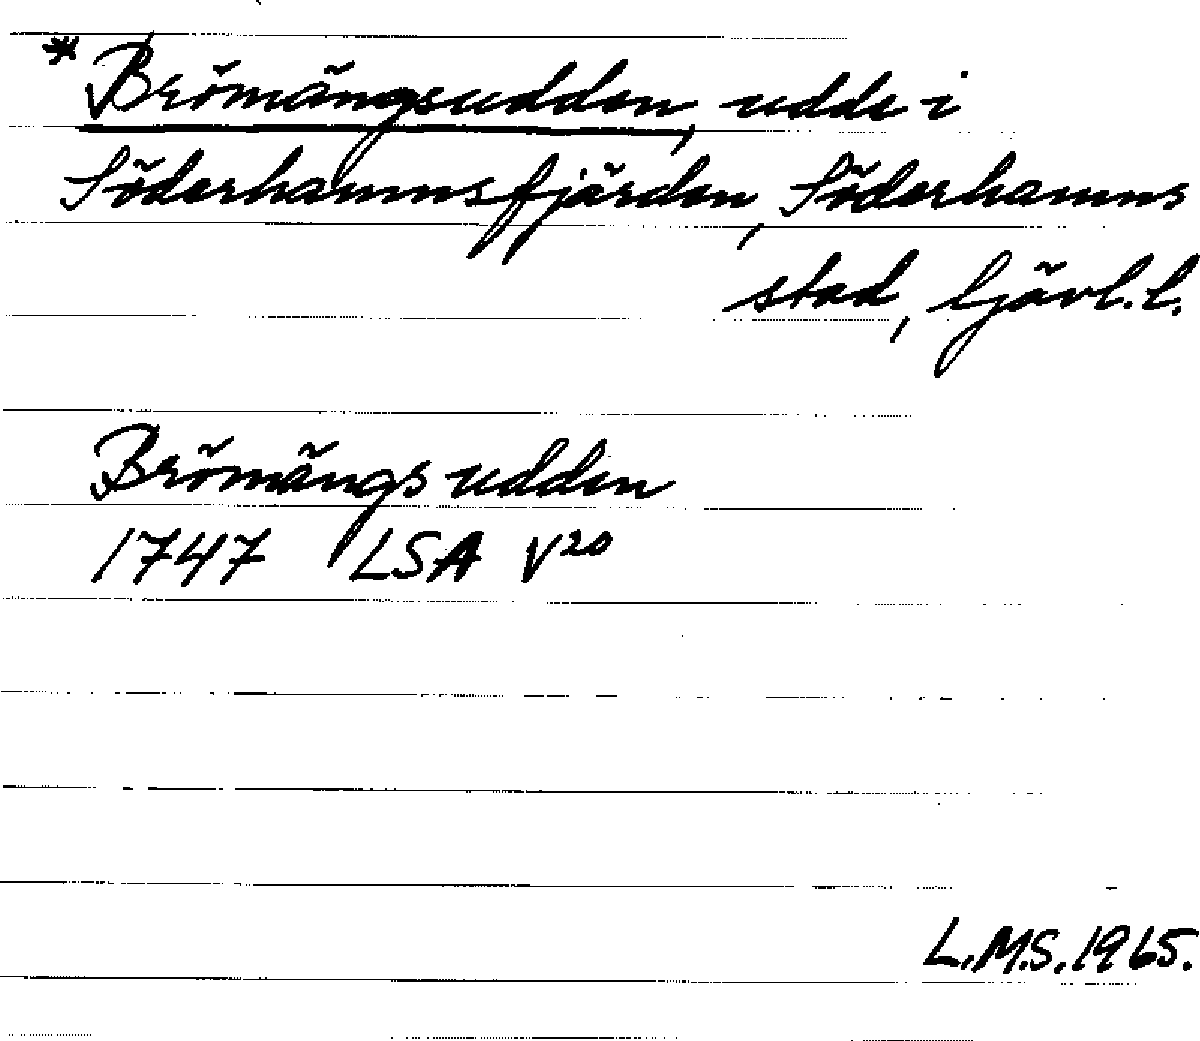 * Brömängsudden, udde i
Söderhamnsfjärden, Söderhamns
stad, Gävl. l.
Brömängs udden
1747 LSA V20
L.M.S. 1965.